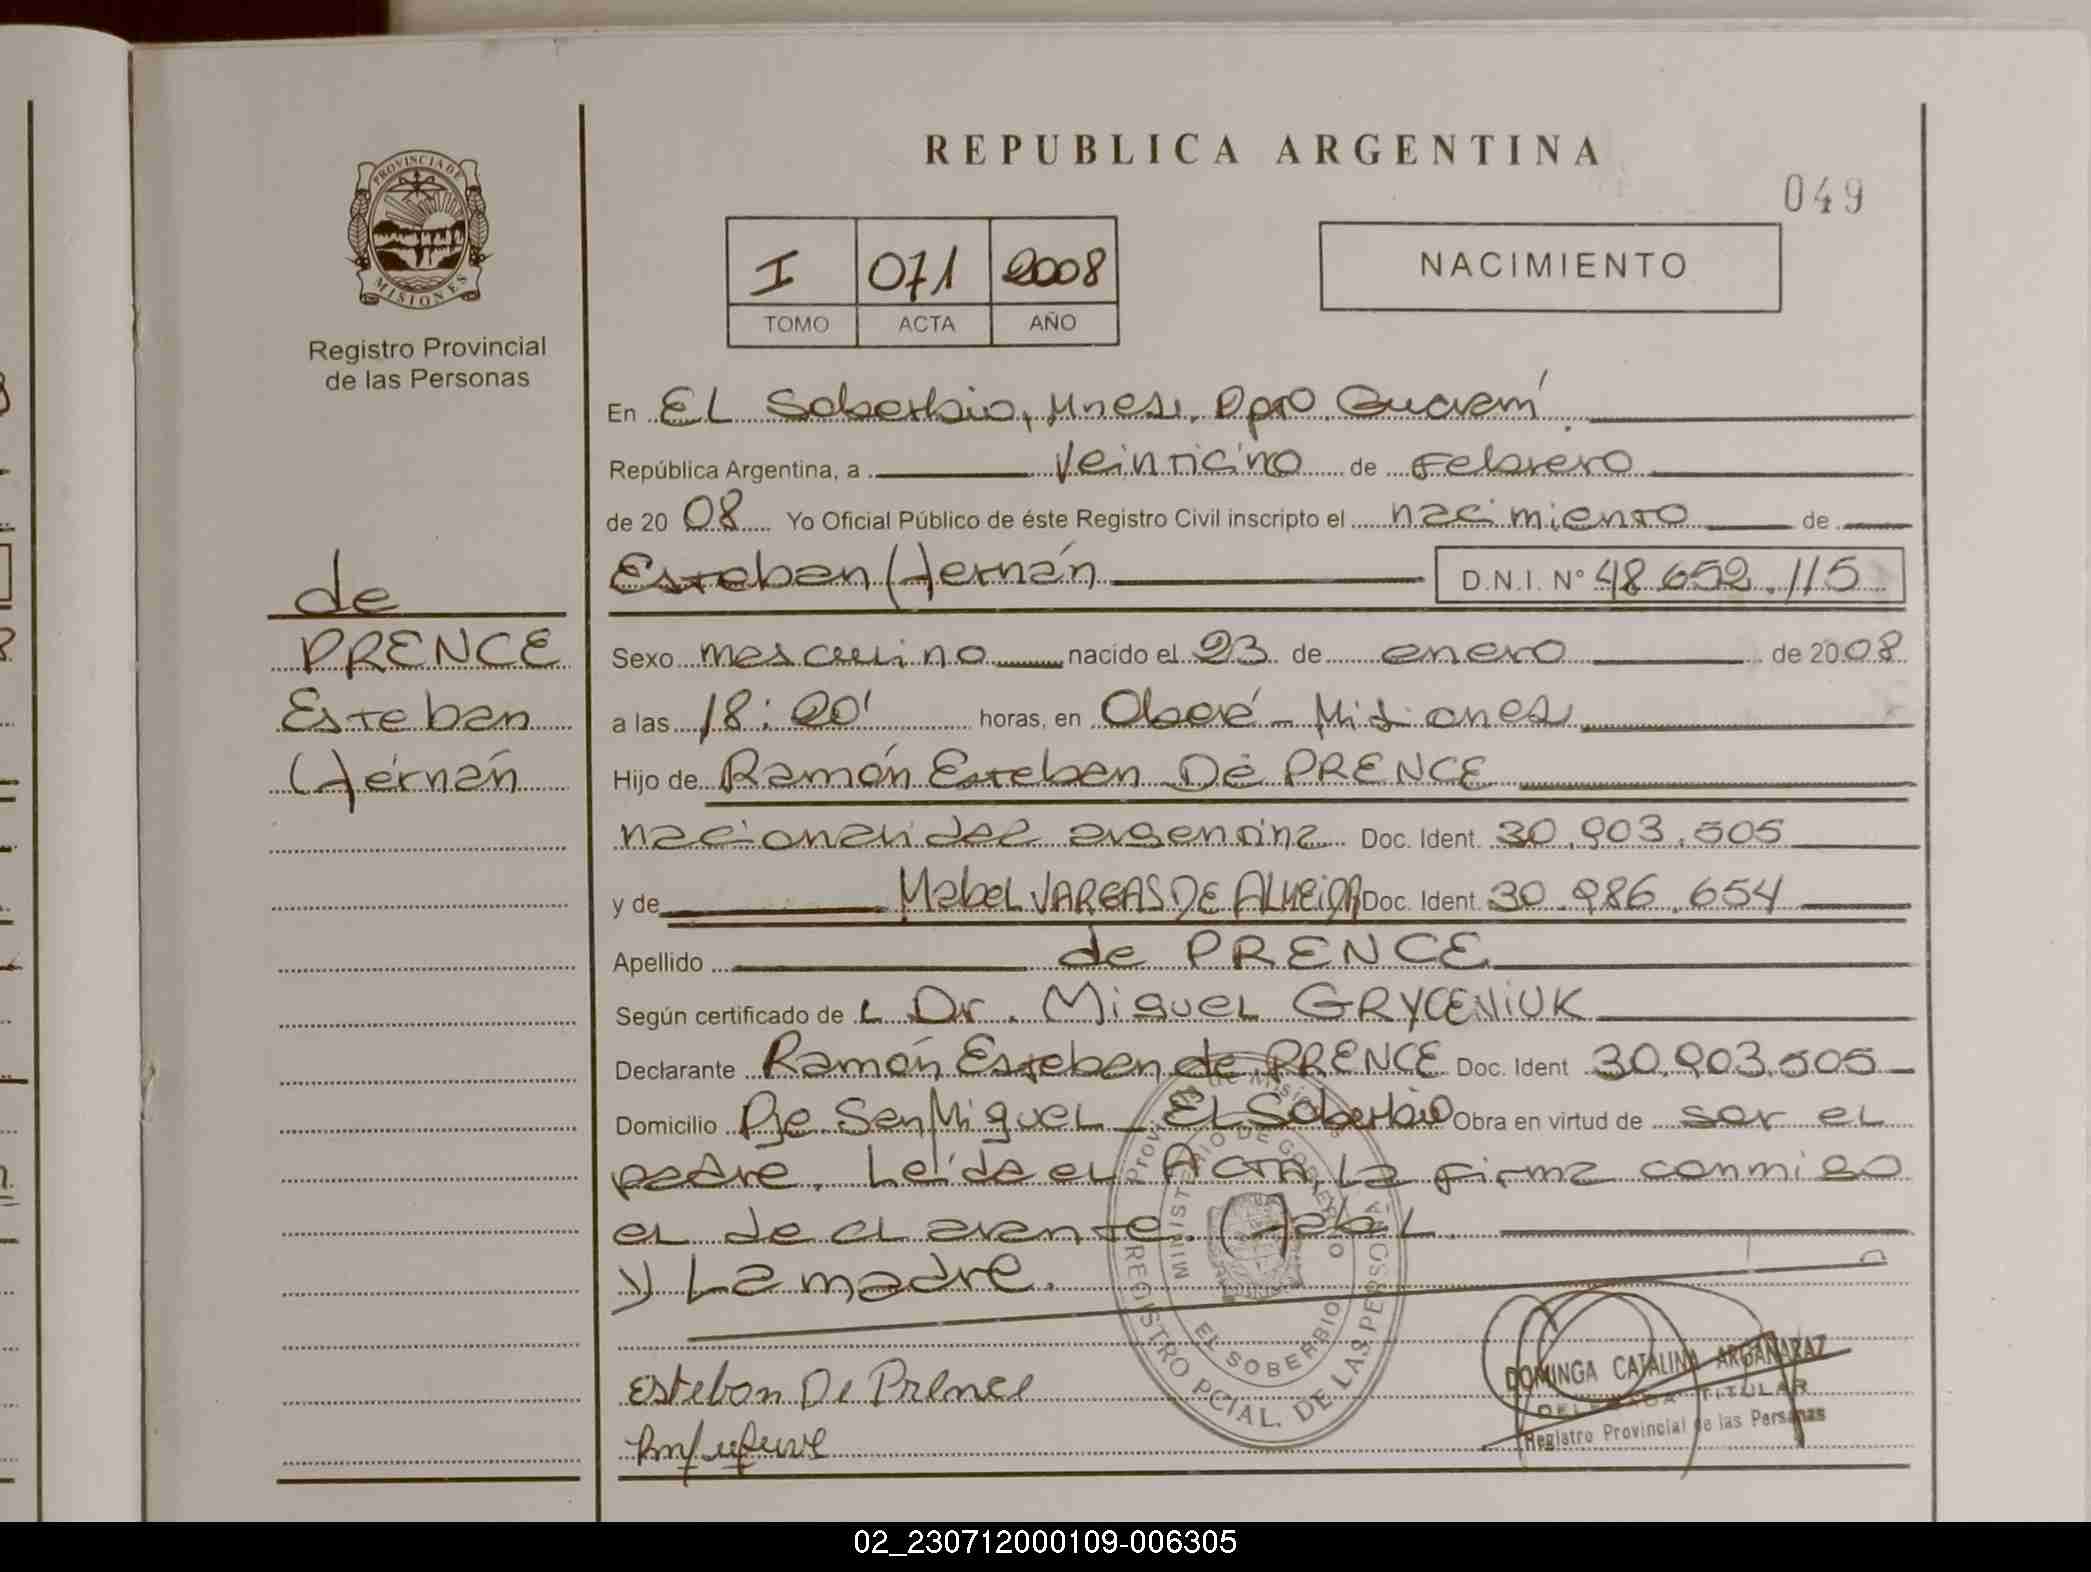 REPUBLICA ARGENTINA
049
PROVINCIA DE
MISIONES
Registro Provincial
de las Personas
I 071 2008
TOMO ACTA AÑO
NACIMIENTO
de
PRENCE
Esteban
Hernán
En EL Soberbio, Mnes, Dpto Guaraní
República Argentina, a Veinticino de Febrero
de 20 08 Yo Oficial Público de éste Registro Civil inscripto el nacimiento de
Esteban Hernán D.N.I. N° 48.652.115
Sexo masculino nacido el 23 de enero de 2008
a las 18:20' horas, en Oberá - Misiones
Hijo de Ramón Esteban De PRENCE
nacionalidad argentina Doc. Ident. 30.903.505
y de Mabel VARGAS DE ALMEIDA Doc. Ident. 30.986.654
Apellido de PRENCE
Según certificado de L Dr. Miguel GRYCENIUK
Declarante Ramón Esteban de PRENCE Doc. Ident 30.903.505
Domicilio Pje San Miguel - EL Soberbio Obra en virtud de ser el
padre. Leída el ACTA, la firma conmigo
el declarante.
y La madre.
Esteban De Prence
MINISTERIO DE GOBIERNO
EL SOBERBIO
REGISTRO PCIAL. DE LAS PERSONAS
DOMINGA CATALINA ARGAÑARAZ
DELEGADA TITULAR
Registro Provincial de las Personas
02_230712000109-006305